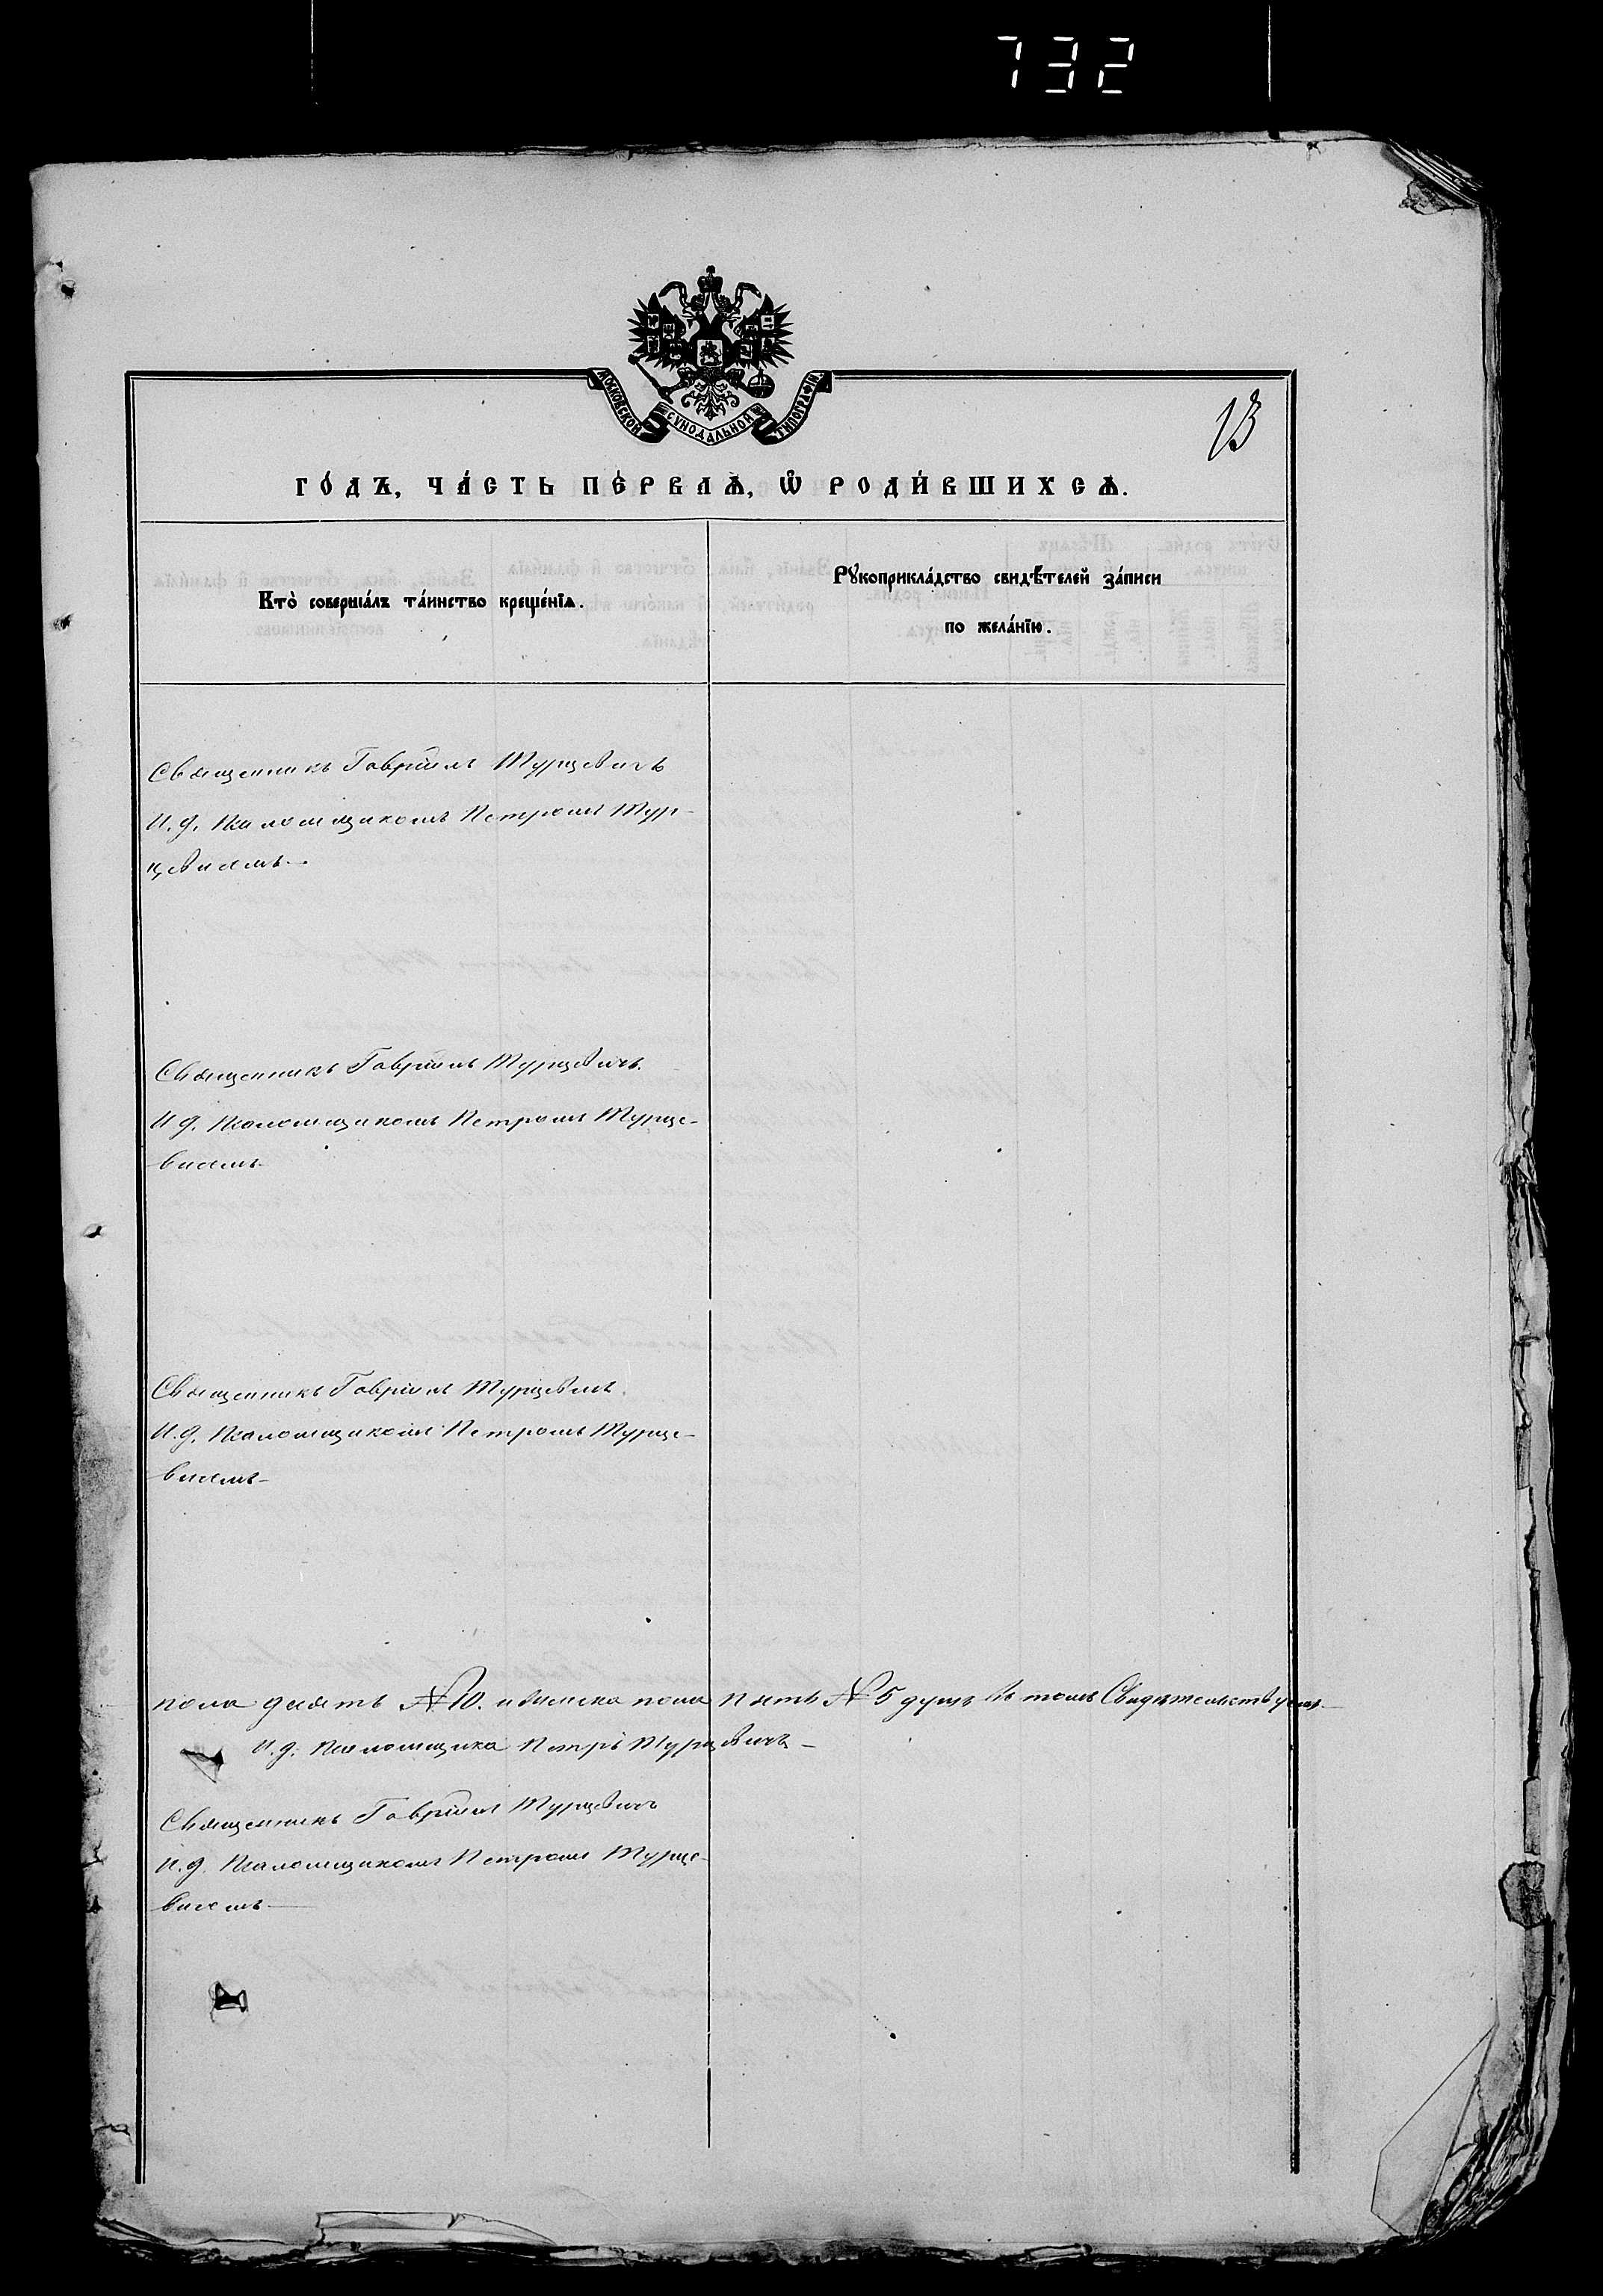 732
МОСКОВСКОЙ СѴНОДАЛЬНОЙ ТИПОГРАФІИ.
13
ГО́ДЪ, ЧА́СТЬ ПЕ́РВАѦ, Ѡ҆ РОДИ́ВШИХСѦ.
Кто̀ соверша́лъ та́инство креще́нїѧ.
Рꙋкоприкла́дство свидѣ́телей за́писи
по жела́нїю.
Священникъ Гавріилъ Турцевичъ
И. д. Псаломщикомъ Петромъ Тур-
цевичемъ.
Священникъ Гавріилъ Турцевичъ.
И д. Псаломщикомъ Петромъ Турце-
вичемъ
Священникъ Гавріилъ Турцевичъ.
И. д. Псаломщикомъ Петромъ Турце-
вичемъ
пола десять № 10. и женска пола пять № 5 душъ въ томъ Свидѣтельствуемъ
И. д. Псаломщика Петръ Турцевичъ
Священникъ Гавріилъ Турцевичъ
И. д. Псаломщикомъ Петромъ Турце-
вичемъ